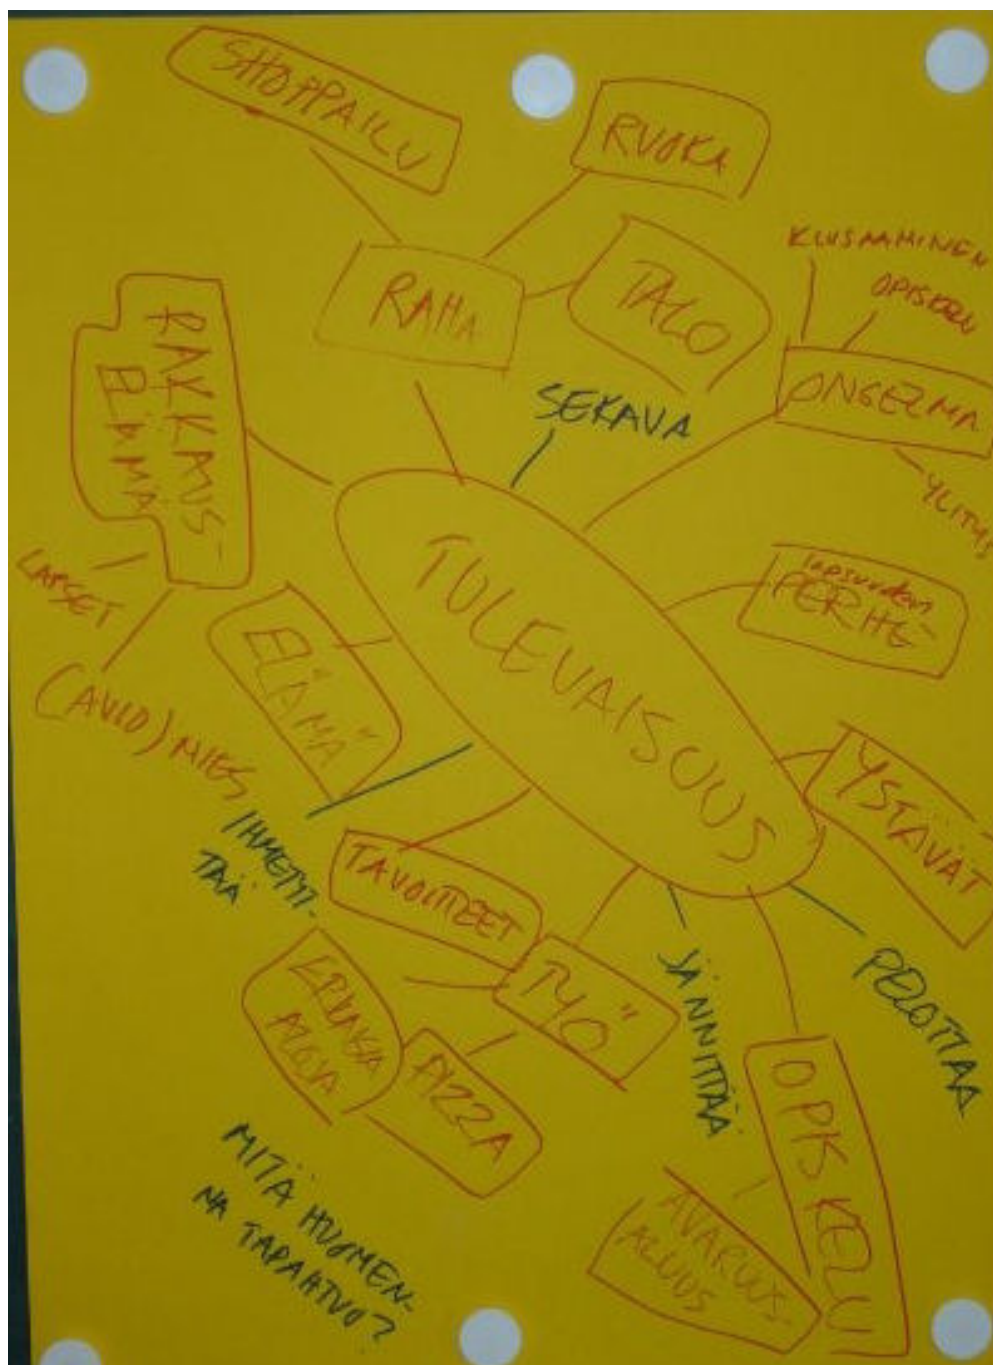 SHOPPAILU
RUOKA
TALO
RAHA
KIUSAAMINEN
ONGELMA
YLITYS
SEKAVA
RAKKAUS-
ELÄMÄ
LAPSET
(AVIO) MIES
TULEVAISUUS
lapsuuden
PERHE
ELÄMÄ
YSTÄVÄT
IHMETYT-
TÄÄ
TAVOITTEET
TYÖ
PIZZA
JÄNNITTÄÄ
PELOTTAA
OPISKELU
AVARUUS-
ALUUS
MITÄ HUOMEN-
NA TAPAHTUU?